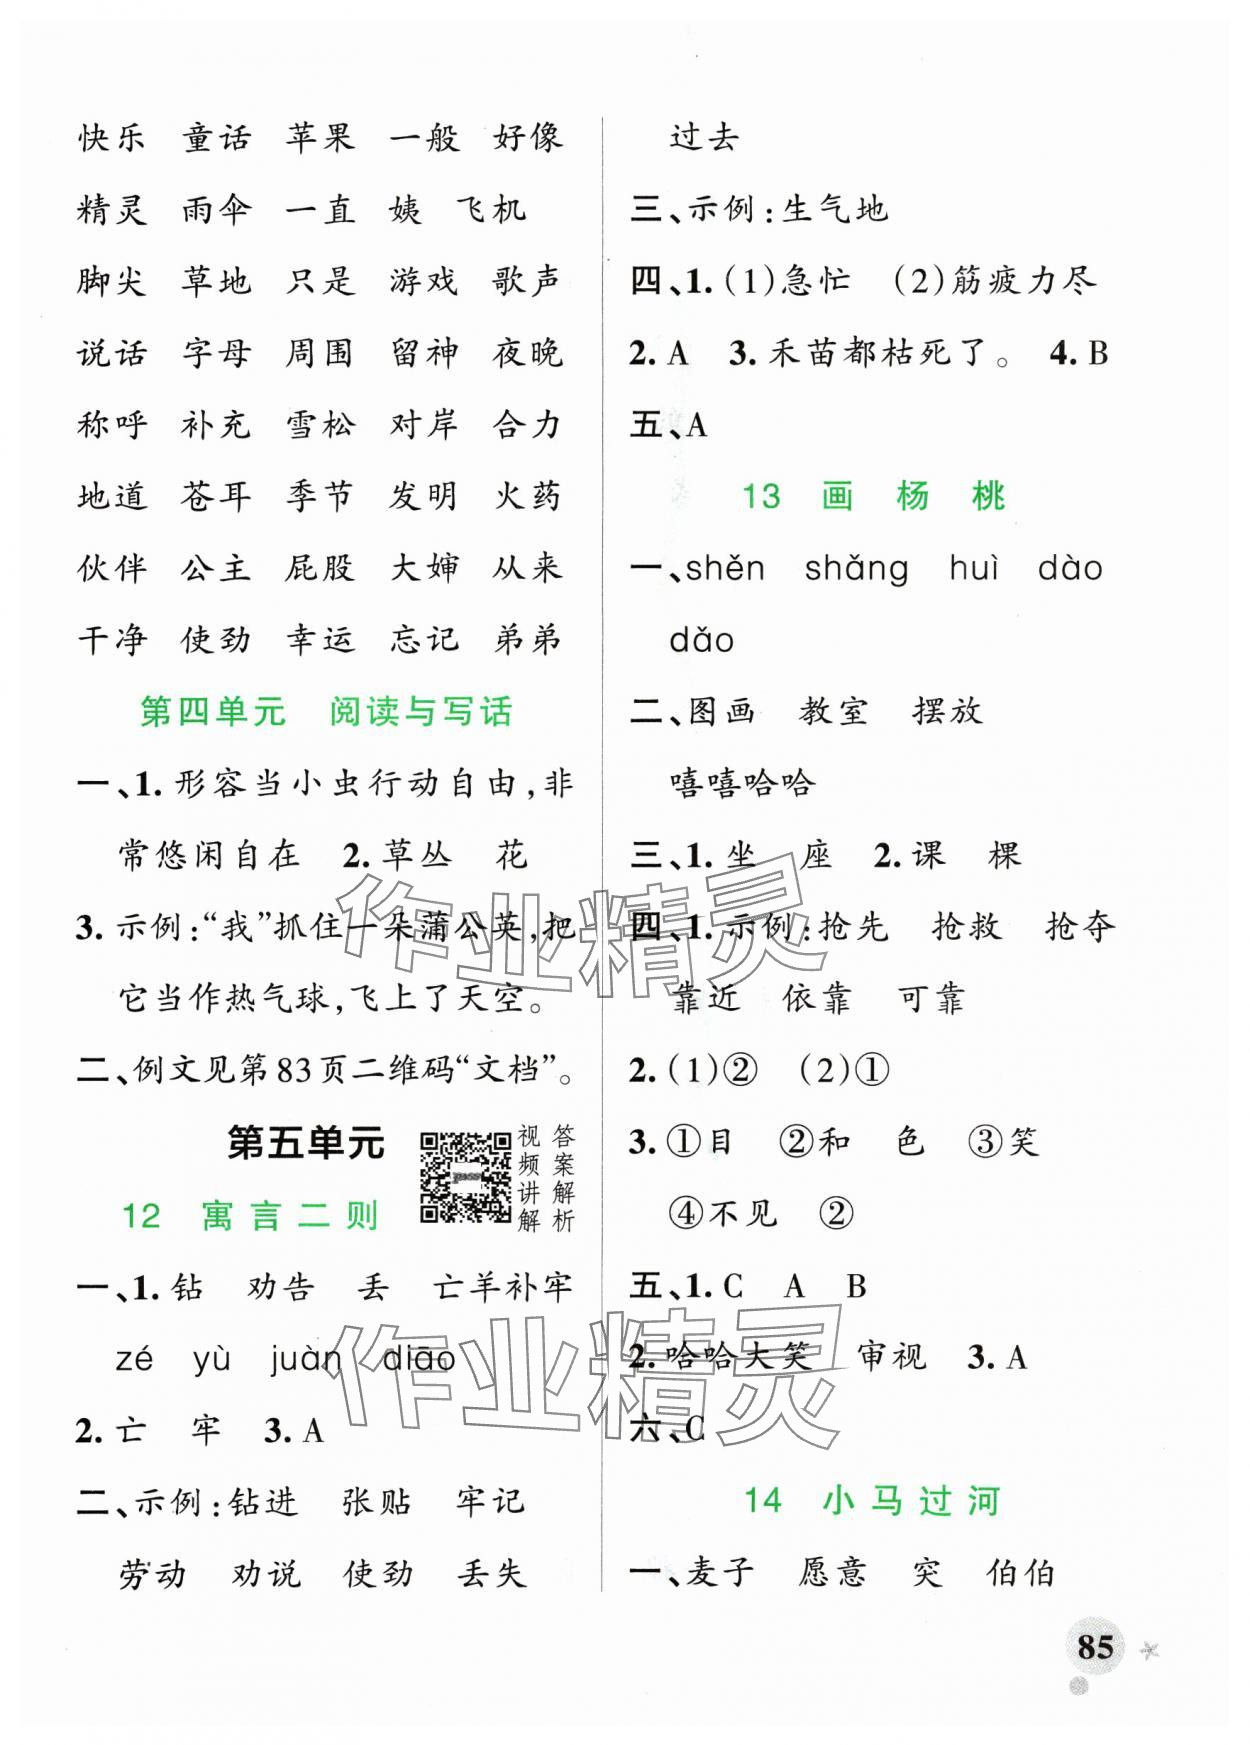 快乐 童话 苹果 一般 好像
精灵 雨伞 一直 姨 飞机
脚尖 草地 只是 游戏 歌声
说话 字母 周围 留神 夜晚
称呼 补充 雪松 对岸 合力
地道 苍耳 季节 发明 火药
伙伴 公主 屁股 大婶 从来
干净 使劲 幸运 忘记 弟弟
第四单元 阅读与写话
一、1. 形容当小虫行动自由,非
常悠闲自在 2. 草丛 花
3. 示例:“我”抓住一朵蒲公英,把
它当作热气球,飞上了天空。
二、例文见第83页二维码“文档”。
第五单元
视频讲解
答案解析
12 寓言二则
一、1. 钻 劝告 丢 亡羊补牢
zé yù juàn diāo
2. 亡 牢 3. A
二、示例:钻进 张贴 牢记
劳动 劝说 使劲 丢失
过去
三、示例:生气地
四、1. (1)急忙 (2)筋疲力尽
2. A 3. 禾苗都枯死了。 4. B
五、A
13 画杨桃
一、shěn shǎng huì dào
dǎo
二、图画 教室 摆放
嘻嘻哈哈
三、1. 坐 座 2. 课 棵
四、1. 示例:抢先 抢救 抢夺
靠近 依靠 可靠
2. (1)② (2)①
3. ①目 ②和 色 ③笑
④不见 ②
五、1. C A B
2. 哈哈大笑 审视 3. A
六、C
14 小马过河
一、麦子 愿意 突 伯伯
85
作业精灵
作业精灵